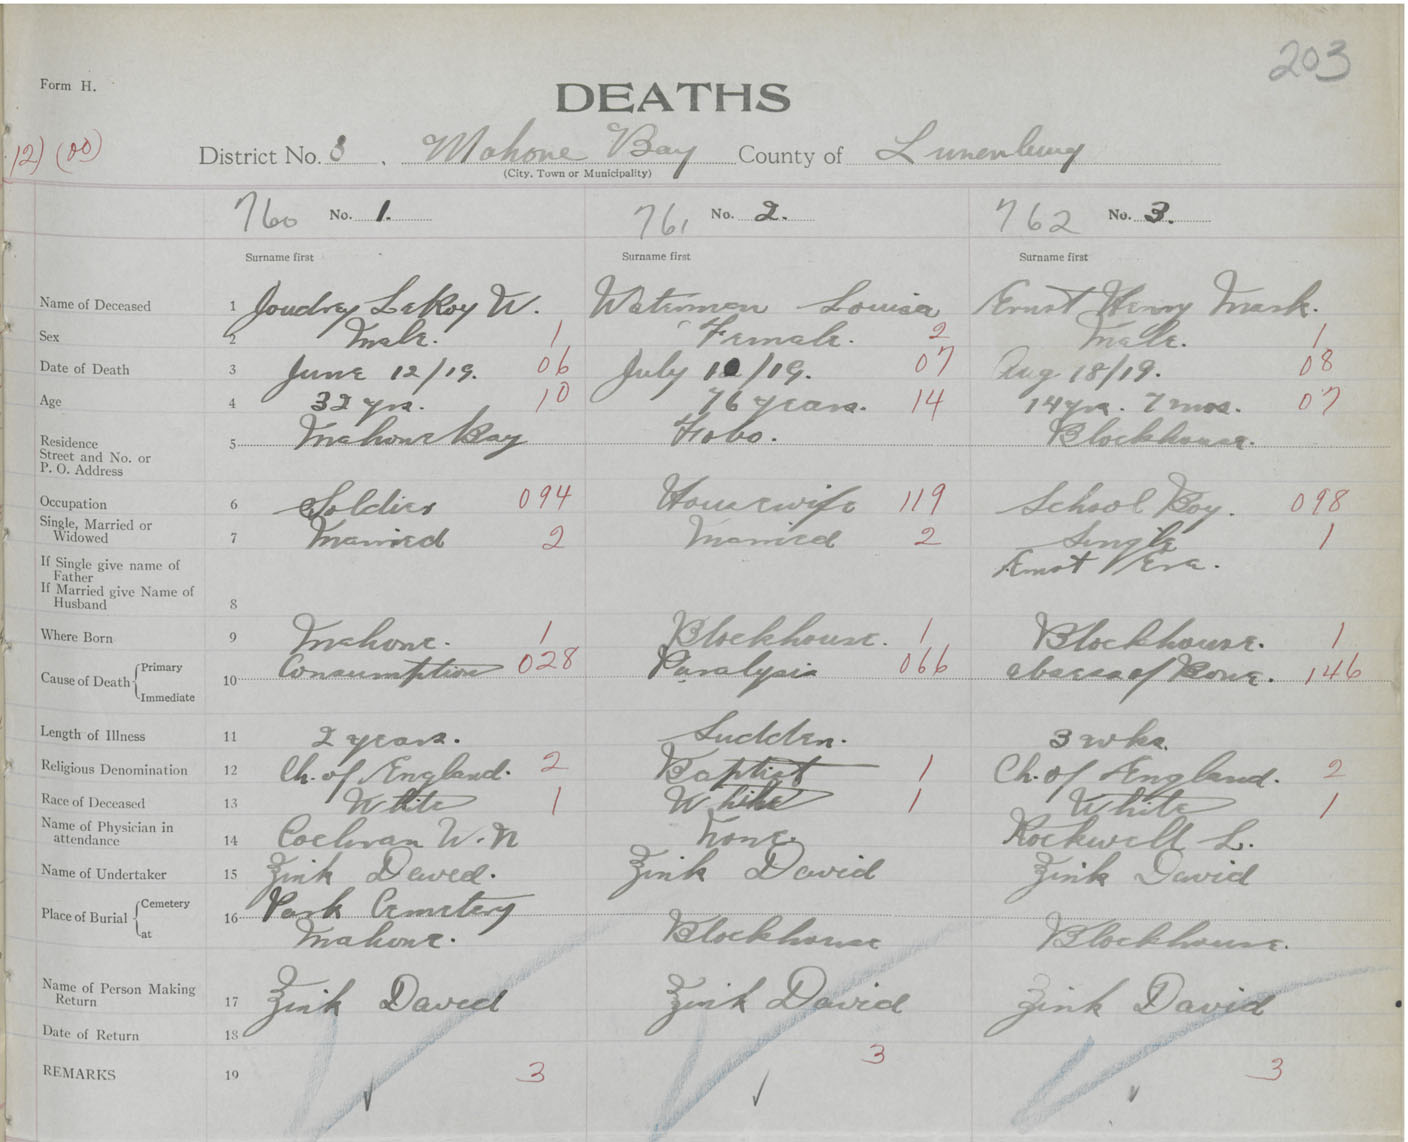 203
Form H.
DEATHS
12) (00)
District No. 3, Mahone Bay County of Lunenburg
(City, Town or Municipality)
760 No. 1. 761 No. 2. 762 No. 3.
Surname first Surname first Surname first
Name of Deceased 1 Joudrey LeRoy W. Waterman Louisa Ernst Henry Mark.
Sex 2 Male. 1 Female. 2 Male. 1
Date of Death 3 June 12/19. 06 July 10/19. 07 Aug 18/19. 08
Age 4 32 yrs. 10 76 years. 14 14 yrs. 7 mos. 07
Residence
Street and No. or
P. O. Address
5 Mahone Bay Fobo. Blockhouse.
Occupation 6 Soldier 094 Housewife 119 School Boy. 098
Single, Married or
Widowed 7 Married 2 Married 2 Single 1
If Single give name of
Father
Ernst Eva.
If Married give Name of
Husband 8
Where Born 9 Mahone. 1 Blockhouse. 1 Blockhouse. 1
Cause of Death Primary
Immediate
10 Consumption 028 Paralysis 066 abscess of Bone. 146
Length of Illness 11 2 years. Sudden. 3 wks.
Religious Denomination 12 Ch. of England. 2 Baptist 1 Ch. of England. 2
Race of Deceased 13 White 1 White 1 White 1
Name of Physician in
attendance 14 Cochran W. N None. Rockwell L.
Name of Undertaker 15 Zink David. Zink David Zink David
Place of Burial Cemetery
at
16 Park Cemetery
Mahone. Blockhouse Blockhouse.
Name of Person Making
Return 17 Zink David Zink David Zink David
Date of Return 18
REMARKS 19 3 3 3